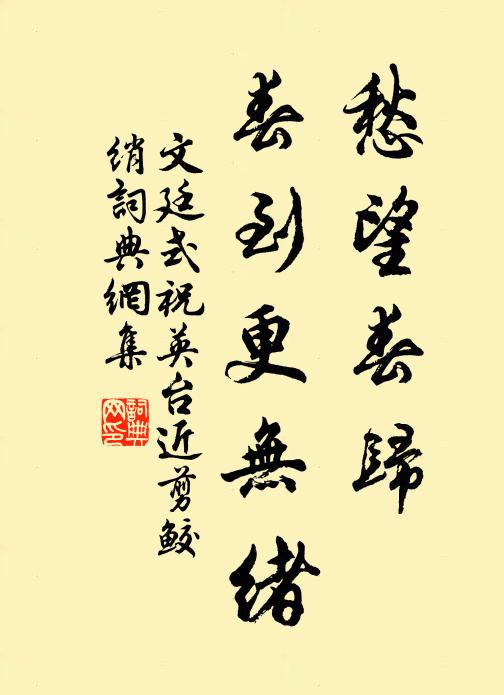 愁望春歸
春到更無緒
文廷式祝英台近剪鮫
綃詞典網集
詞典
網印